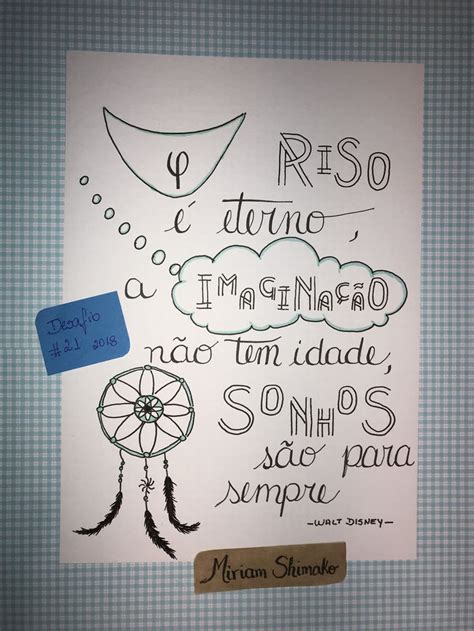 φ RISO
é eterno,
a IMAGINAÇÃO
Desafio
#21 2018
não tem idade,
SONHOS
são para
sempre
-WALT DISNEY-
Miriam Shimako